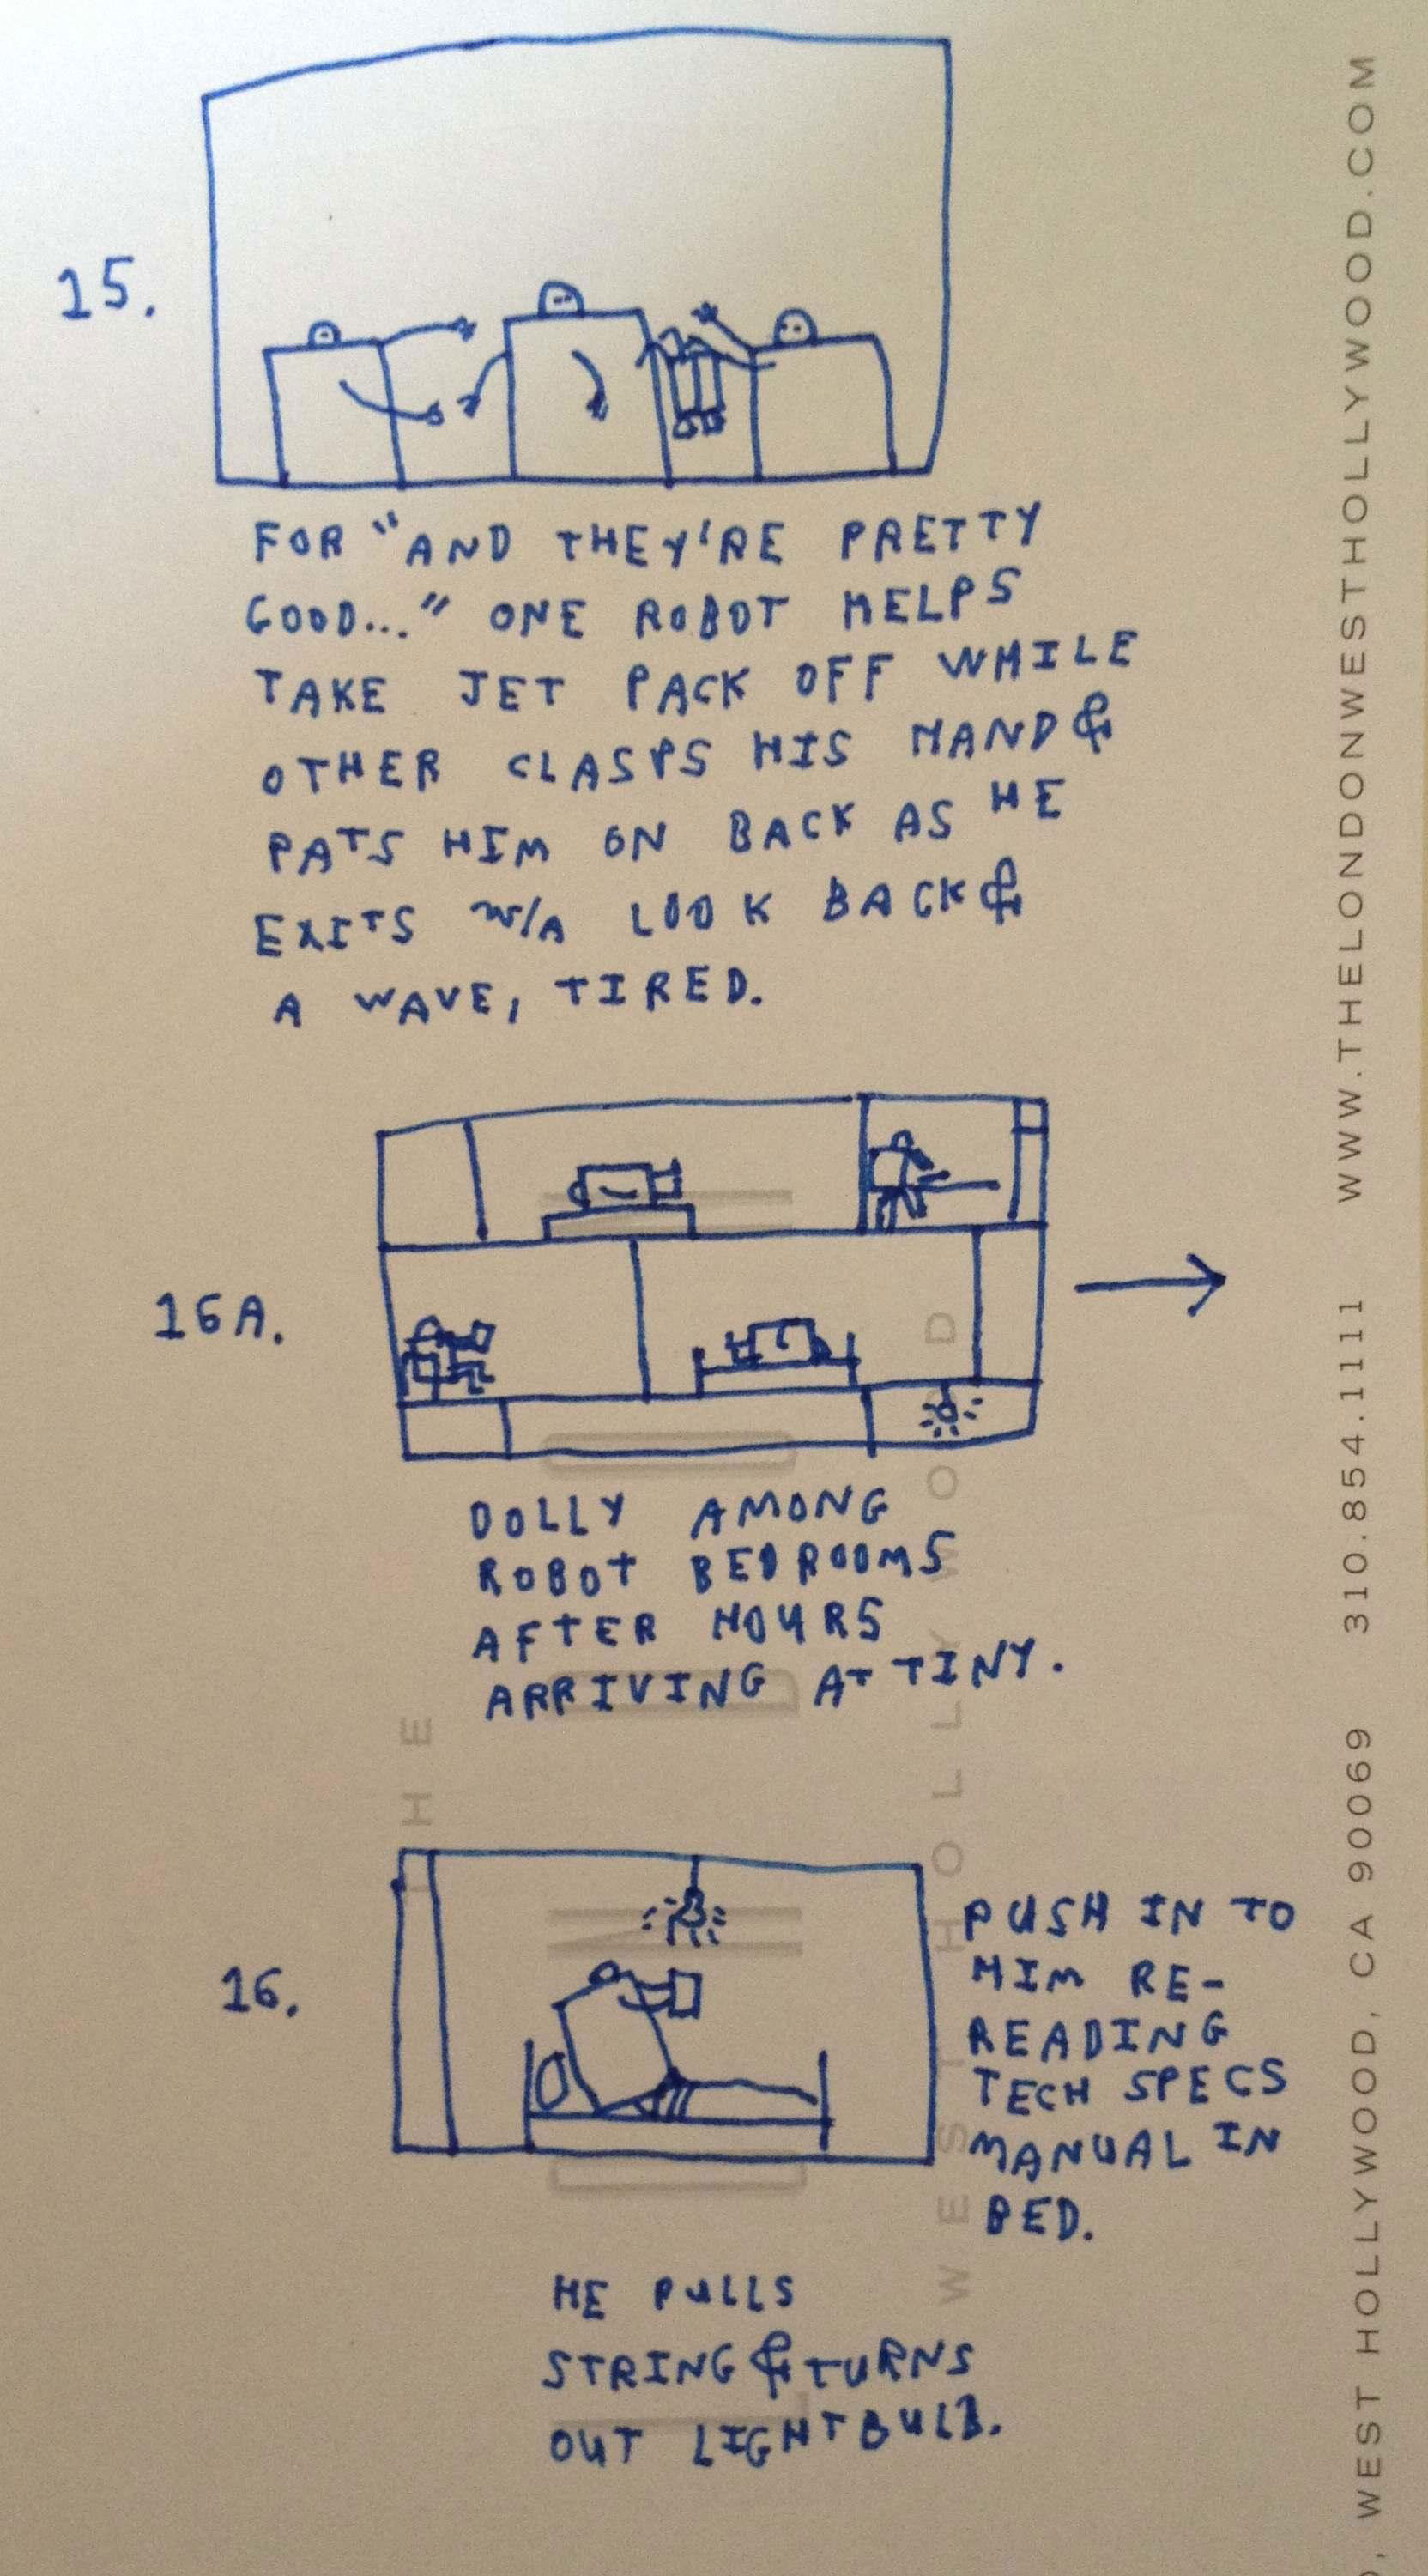 15.
FOR "AND THEY'RE PRETTY
GOOD..." ONE ROBOT HELPS
TAKE JET PACK OFF WHILE
OTHER CLASPS HIS HAND &
PATS HIM ON BACK AS HE
EXITS W/A LOOK BACK &
A WAVE, TIRED.
16A.
DOLLY AMONG
ROBOT BEDROOMS
AFTER HOURS
ARRIVING AT TINY.
16.
PUSH IN TO
HIM RE-
READING
TECH SPECS
MANUAL IN
BED.
HE PULLS
STRING & TURNS
OUT LIGHTBULB.
, WEST HOLLYWOOD, CA 90069 310.854.1111 WWW.THELONDONWESTHOLLYWOOD.COM
THE
LONDON
WEST HOLLYWOOD